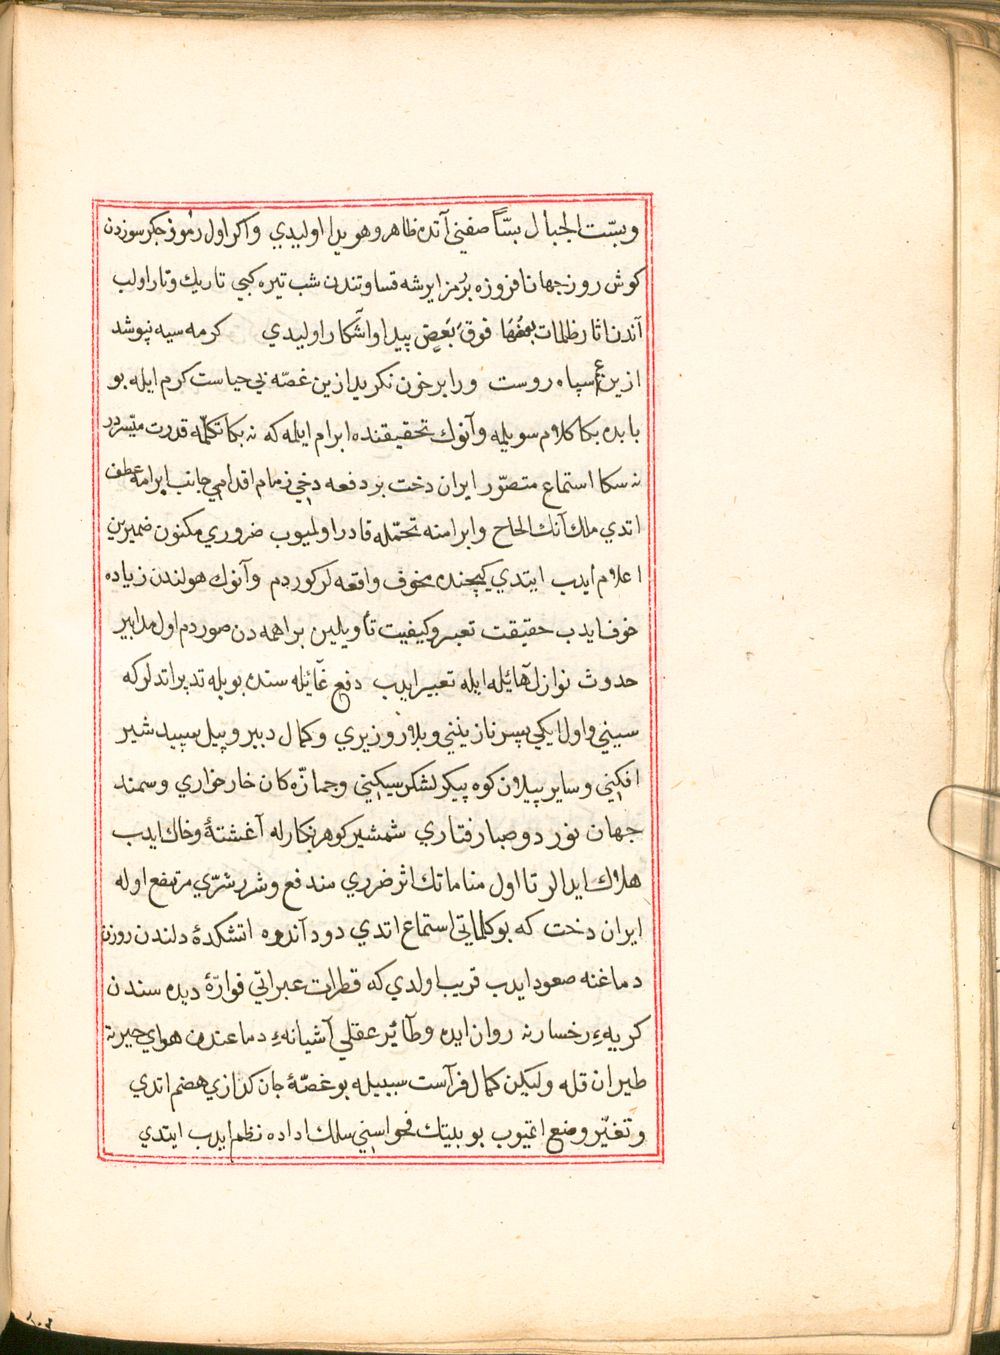 وبسّت الجبال بسّاً صفني آنده ظاهر وهويدا اوليدي واكر اول رموز جكر سوزدن
كوش روز جهان افروزه بر رمز ايرشه قساوتندن شب تيره كبي تاريك وتار اولب
آندن اثار ظلمات بعضُهَا فوقَ بَعضٍ پيدا وآشكار اوليدي كرمه سيه نپوشد
ازين غم سپاه روست ورابر خون نكريد ازين غصّه بي حياست كرم ايله بو
بابده بكا كلام سويله وآنوك تحقيقنده ابرام ايله كه نه بكا تكلّمه قدرت ميّسردر
نه سكا استماع متصوّر ايران دخت بر دفعه دخي زمام اقدامي جانب ابرامه عطف
اتدي ملك آنك الحاح وابرامنه تحمّله قادر اولميوب ضروري مكنون ضميرين
اعلام ايدب ايتدي كيچنده مخوف واقعه لر كوردم وآنوك هولندن زياده
خوف ايدب حقيقت تعبير وكيفيت تأويلين براهمه دن صوردم اول مدابير
حدوث نوازل هآئله ايله تعبير ايدب دفع غآئله سنده بويله تدبير اتدلر كه
سيني واول ايكي پسر نازينني وبلار وزيري وكمال دبير وپيل سپيد شير
افكني وساير پيلان كوه پيكر لشكر سيكيني وجمازّه كان خار خواري وسمند
جهان نورد وصبا رفتاري شمشير كوهر نكار له آغشتهٔ وخاك ايدب
هلاك ايدالر تا اول مناماتك اثر ضرري مندفع وشرر شرّي مرتفع اوله
ايران دخت كه بو كلماتي استماع اتدي دود آندوه اتشكدهٔ دلندن روزن
دماغنه صعود ايدب قريب اولدي كه قطرات عبراتي فوارّهٔ ديده سندن
كريهءِ رخسارنه روان ايده وطآئر عقلي آشيانهءِ دماغندن هواي حيرته
طيران قله وليكن كمال فرآست سببيله بو غصّهٔ جان كدازي هضم اتدي
وتغيّر وضع اتميوب بو بيتك فحواسني سلك اداده نظم ايدب ايتدي